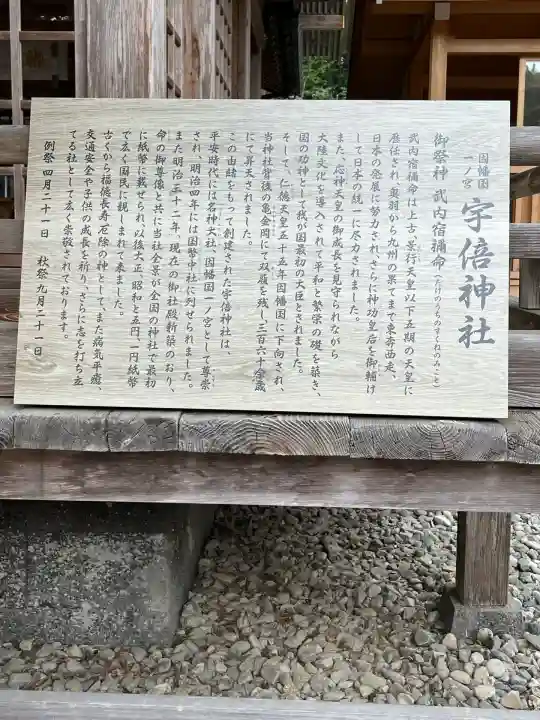 因幡国
一ノ宮
宇倍神社
御祭神 武内宿禰命(たけのうちのすくねのみこと)
武内宿禰命は上古、景行天皇以下五期の天皇に
歴任され、奥羽から九州の果てまで東奔西走、
日本の発展に努力され、さらに神功皇后を御輔け
して日本の統一に尽力されました。
また、応神天皇の御成長を見守られながら
大陸文化を導入されて平和と繁栄の礎を築き、
国の功神として我が国最初の大臣とされました。
そして、仁徳天皇五十五年因幡国に下向され、
当神社背後の亀金岡にて双履を残し三百六十余歳
にて昇天されました。
この由緒をもつて創建された宇倍神社は、
平安時代には名神大社、因幡国一ノ宮として尊崇
され、明治四年には国幣中社に列せられました。
また明治三十二年、現在の御社殿新築のおり、
命の御尊像と共に当社全景が全国の神社で最初
に紙幣に載せられ、以後大正昭和と五円一円紙幣
で広く国民に親しまれて来ました。
古くから福徳長寿厄除の神として、また病気平癒、
交通安全や子供の成長を祈り、さらに志を打ち立
てる社として広く崇敬されております。
例祭 四月二十一日 秋祭 九月二十一日